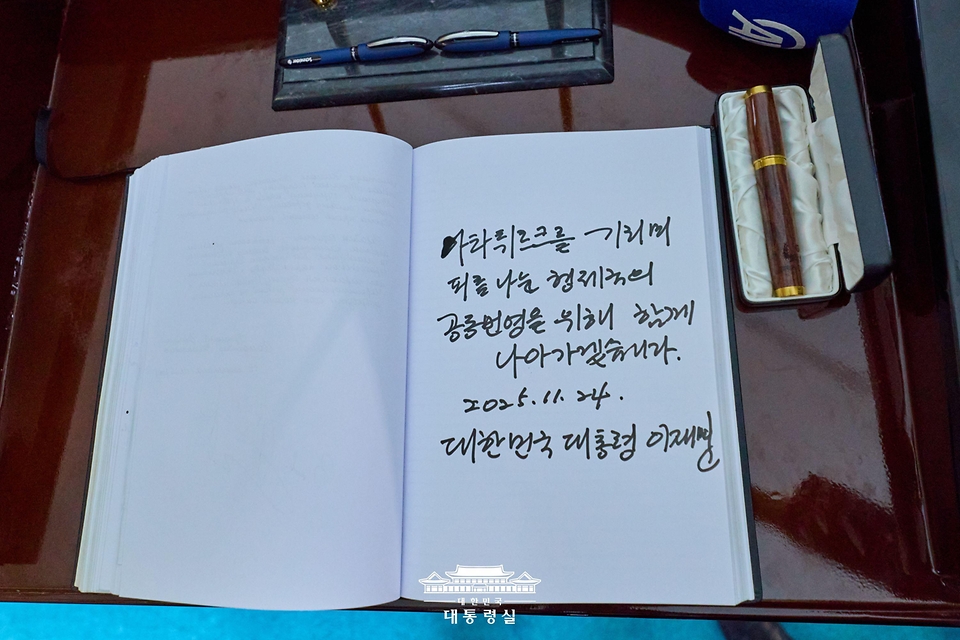 아타튀르크를 기리며
피를 나눈 형제국의
공동번영을 위해 함께
나아가겠습니다.
2025. 11. 24.
대한민국 대통령 이재명
대한민국
대통령실